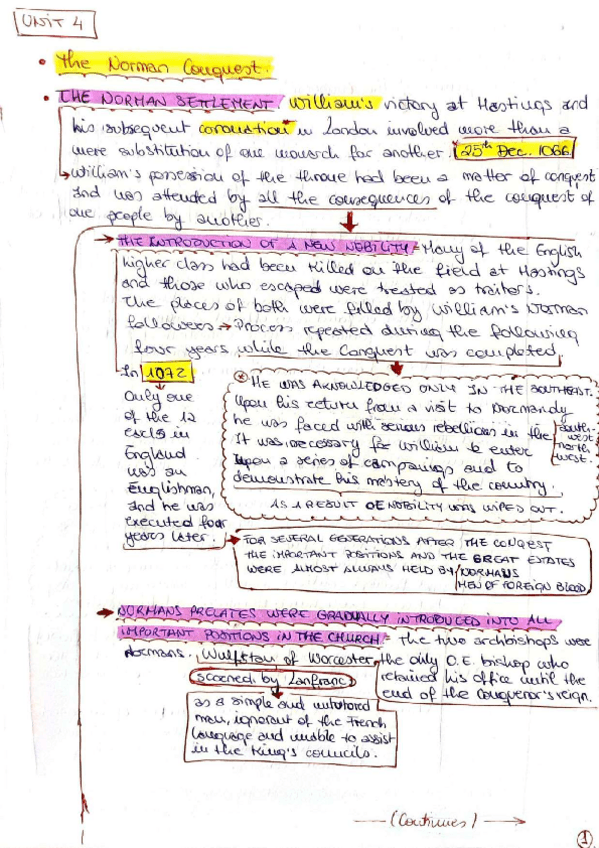 UNIT 4
• The Norman Conquest.
• THE NORMAN SETTLEMENT. William's victory at Hastings and
his subsequent coronation* in London involved more than a
mere substitution of one monarch for another. *25th Dec. 1066
→ William's possession of the throne had been a matter of conquest
and was attended by all the consequences of the conquest of
one people by another.
→ THE INTRODUCTION OF A NEW NOBILITY = Many of the English
higher class had been killed on the field at Hastings
and those who escaped were treated as traitors.
The places of both were filled by William's Norman
followers → Process repeated during the following
four years, while the Conquest was completed.
In 1072
Only one
of the 12
earls in
England
was an
Englishman,
and he was
executed four
years later.
* HE WAS AKNOWLEDGED ONLY IN THE SOUTHEAST.
Upon his return from a visit to Normandy
he was faced with serious rebellions in the
south-
west
north
west.
It was necessary for William to enter
upon a series of campaings and to
demonstrate his mastery of the country.
AS A RESULT OE NOBILITY WAS WIPED OUT.
→ FOR SEVERAL GENERATIONS AFTER THE CONQEST
THE IMPORTANT POSITIONS AND THE GREAT ESTATES
WERE ALMOST ALWAYS HELD BY NORMANS
MEN OF FOREIGN BLOOD
→ NORMANS PRELATES WERE GRADUALLY INTRODUCED INTO ALL
IMPORTANT POSITIONS IN THE CHURCH = The two archbishops were
Normans. Wulfstan of Worcester, the only O.E. bishop who
retained his office until the
end of the Conqueror's reign.
scorned by Lanfranc
as a simple and untutored
man, ignorant of the French
language and unable to assist
in the King's councils.
— (Continues) →
1